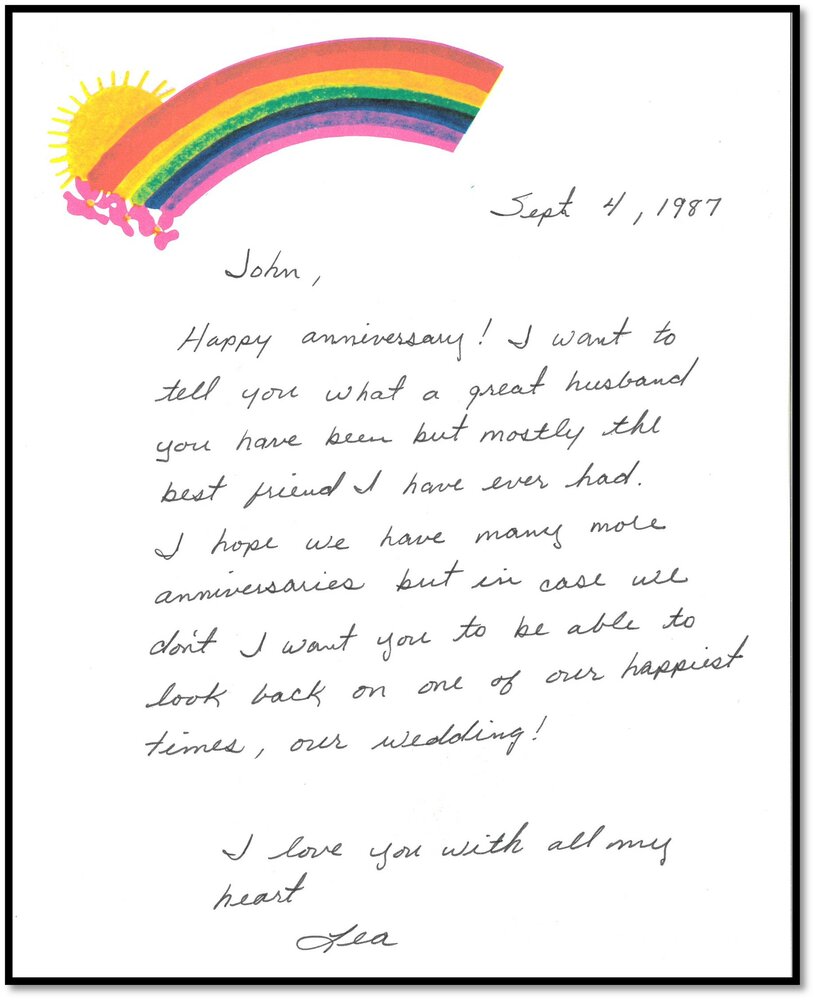 Sept 4, 1987
John,
Happy anniversary! I want to
tell you what a great husband
you have been but mostly the
best friend I have ever had.
I hope we have many more
anniversaries but in case we
don't I want you to be able to
look back on one of our happiest
times, our wedding!
I love you with all my
heart
Lea